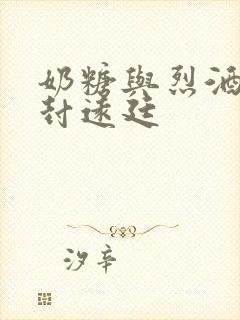 奶糖與烈酒
封遠廷
汐辛